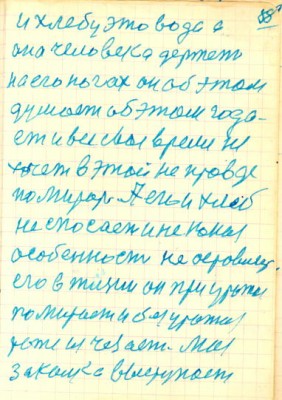 и хлебу это вода а
она человека держет
на его ногах он об этом
думает об этом гада-
ет и в све свае время не
хочет в этой не правде
помират. А ечо и хлеб
не спосает и не кокая
особенност не оставит
его в жизни он при урожаи
помирает и без урожая
тоже исчезает. Моя
закалка выступает